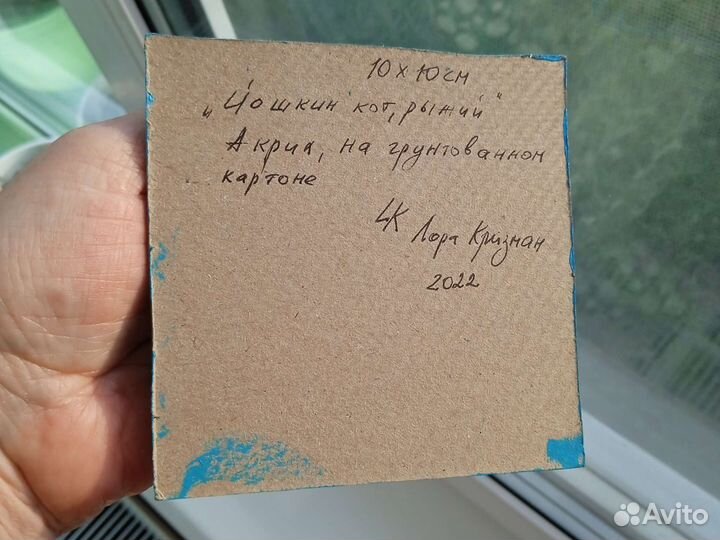 10 х 10 см
„Йошкин кот, рыжий"
Акрил, на грунтованном
картоне
LK Лора Кризман
2022
Avito